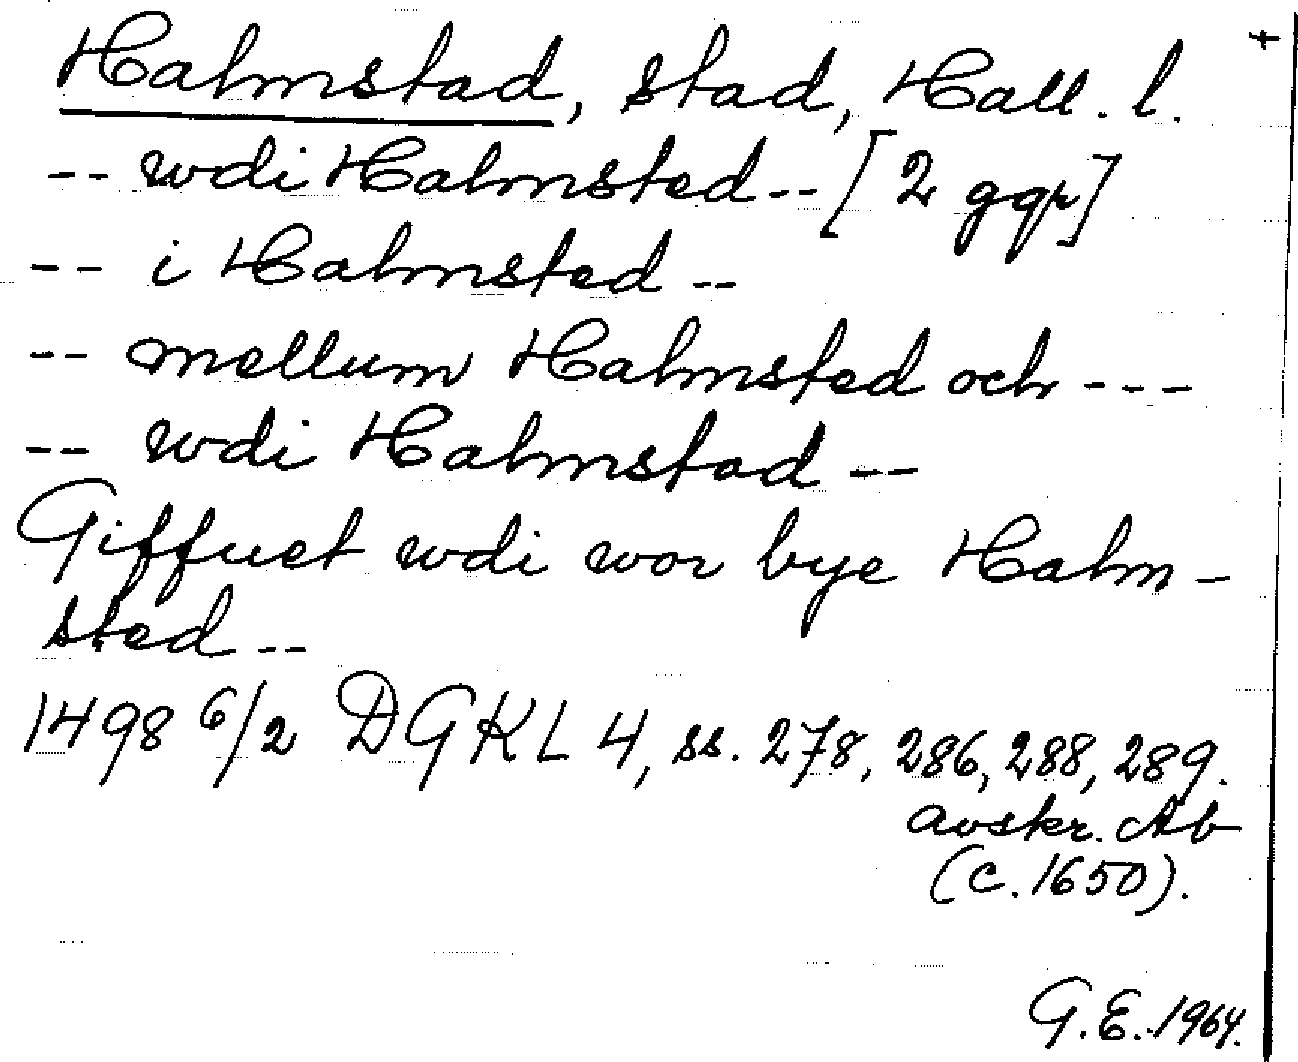 +
Halmstad, stad, Hall. l.
-- wdi Halmsted -- [2 ggr]
-- i Halmsted --
-- mellum Halmsted och ---
-- wdi Halmstad --
Giffuet wdi wor bye Halm-
sted --
1498 6/2 DGKL 4, ss. 278, 286, 288, 289.
avskr. Ab
(c. 1650).
G.E. 1964.